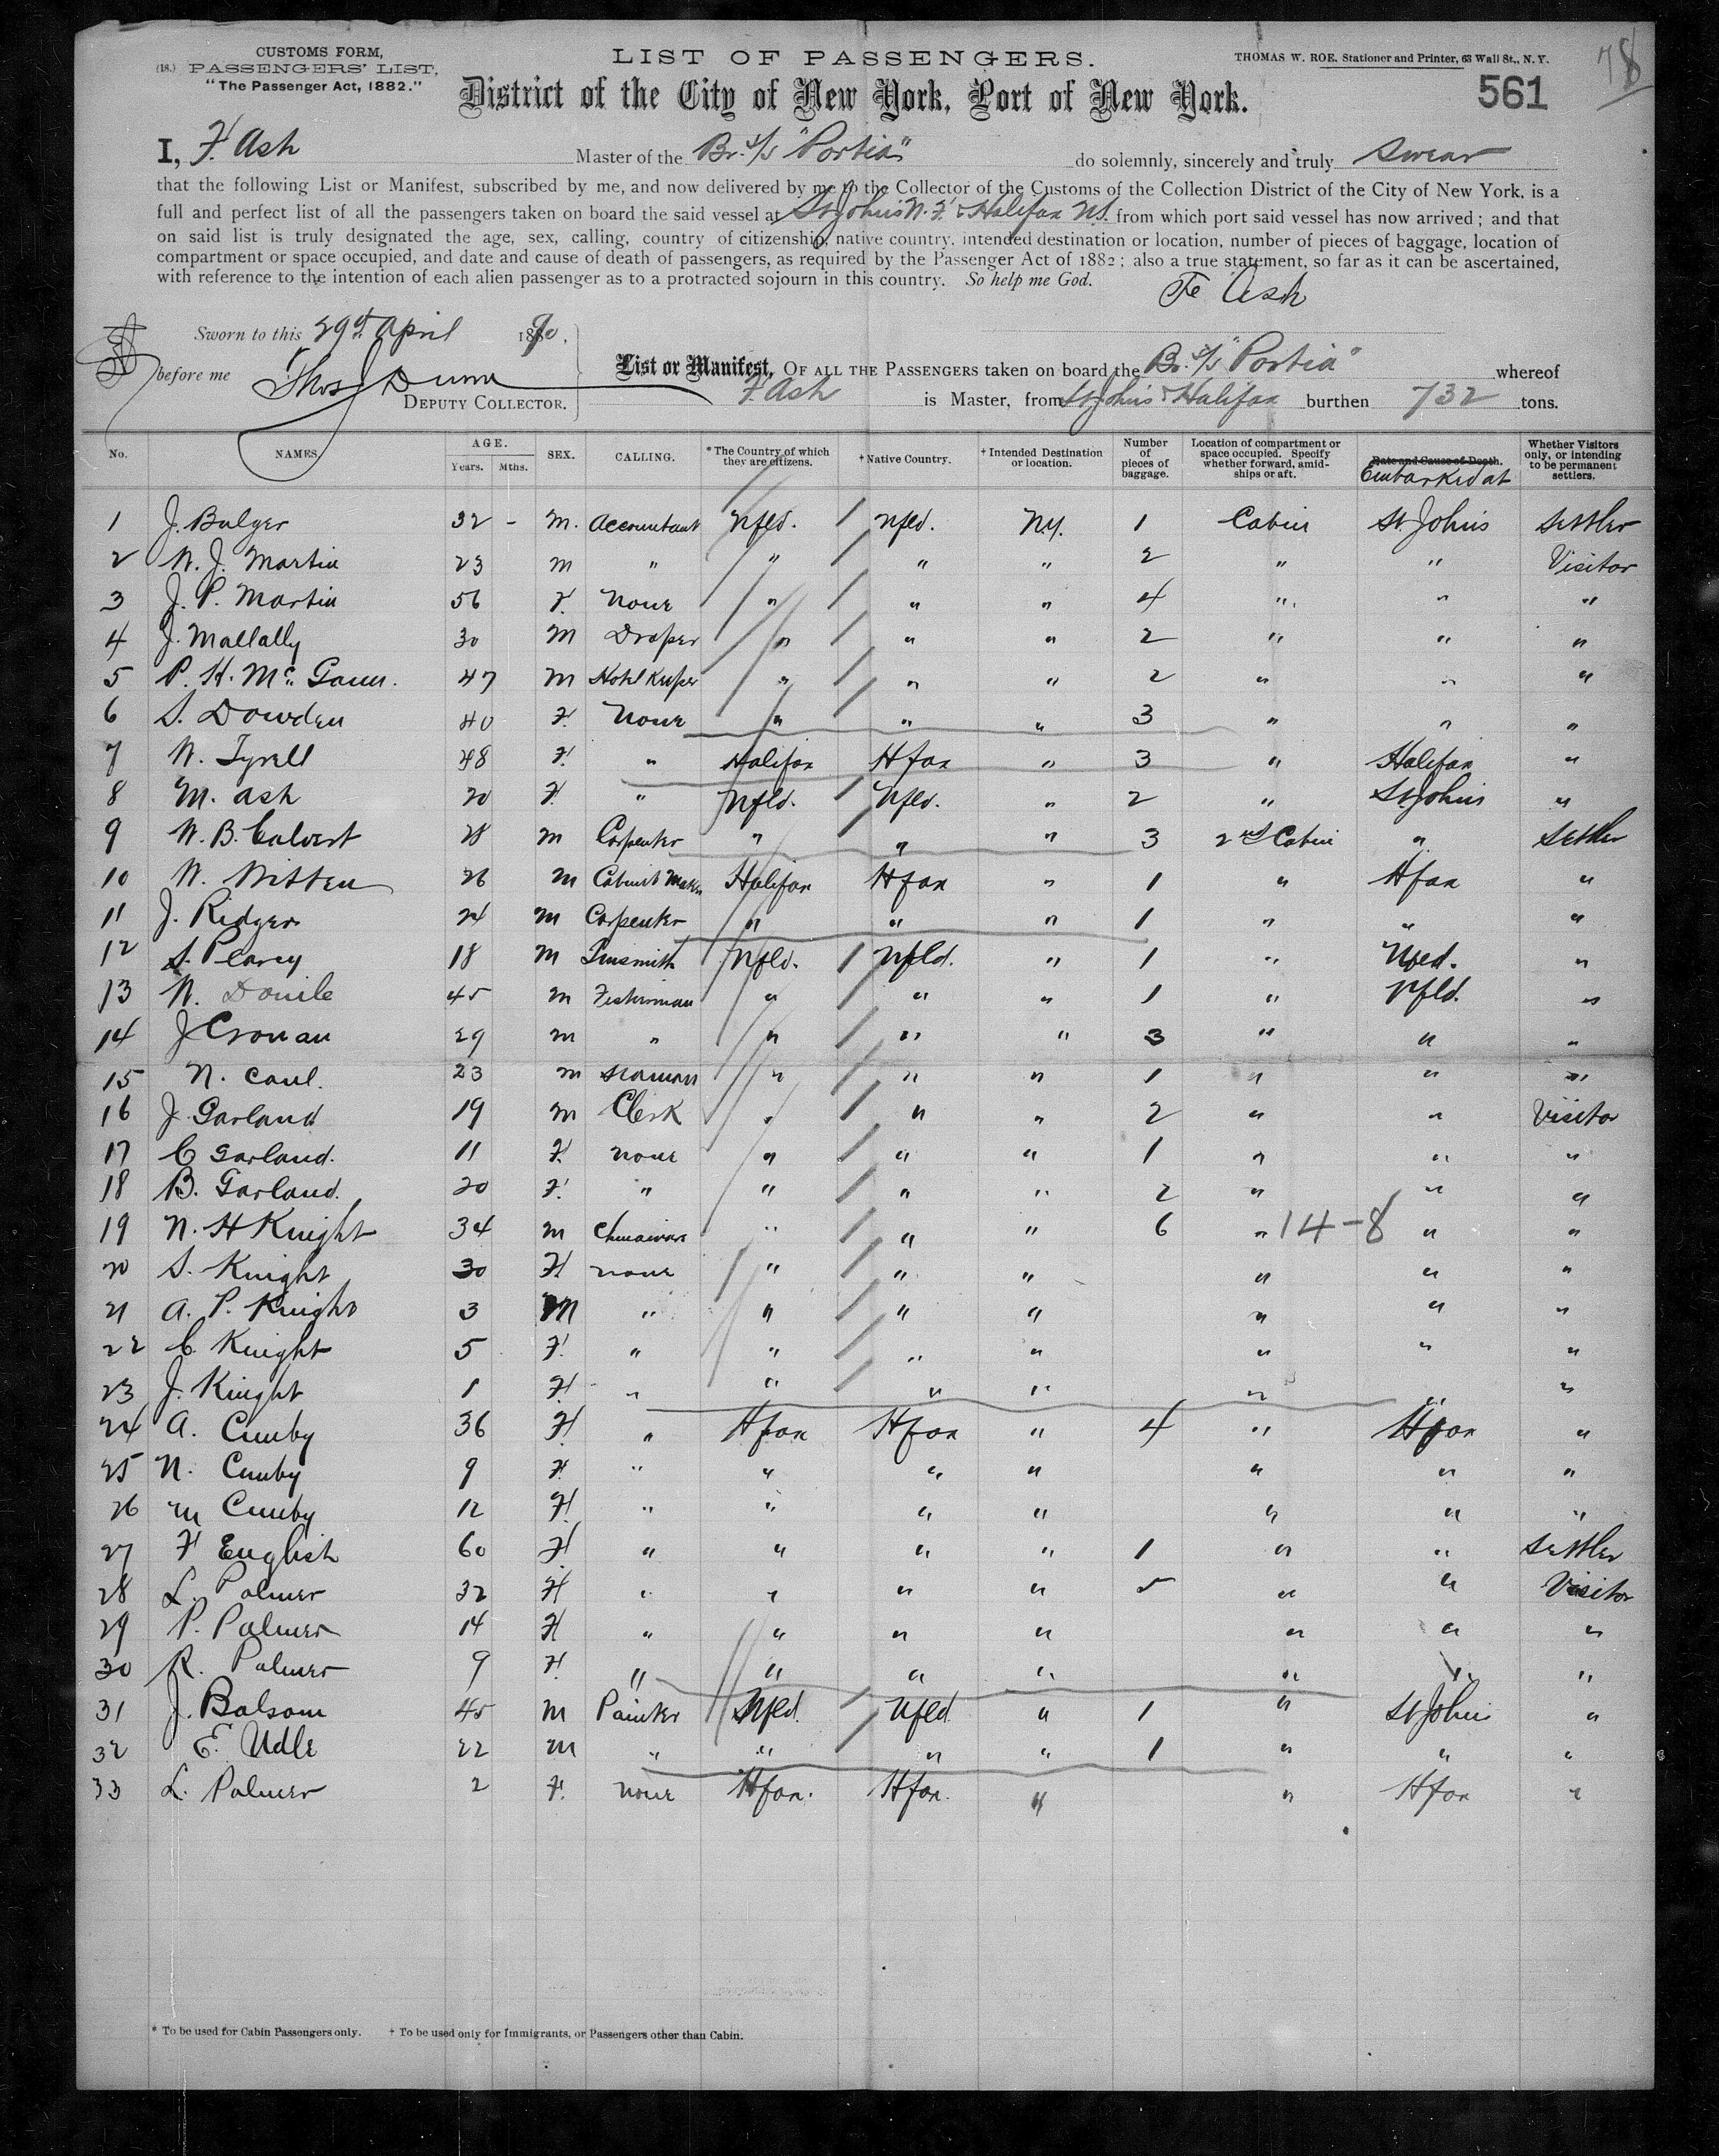 CUSTOMS FORM,
(18.) PASSENGERS' LIST,
"The Passenger Act, 1882."
LIST OF PASSENGERS.
THOMAS W. ROE, Stationer and Printer, 63 Wall St., N. Y.
78
561
District of the City of New York, Port of New York.
I, F. Ash Master of the Br. S/S "Portia" do solemnly, sincerely and truly swear
that the following List or Manifest, subscribed by me, and now delivered by me to the Collector of the Customs of the Collection District of the City of New York, is a
full and perfect list of all the passengers taken on board the said vessel at St Johns N. F. & Halifax N.S. from which port said vessel has now arrived; and that
on said list is truly designated the age, sex, calling, country of citizenship, native country, intended destination or location, number of pieces of baggage, location of
compartment or space occupied, and date and cause of death of passengers, as required by the Passenger Act of 1882; also a true statement, so far as it can be ascertained,
with reference to the intention of each alien passenger as to a protracted sojourn in this country. So help me God.
F Ash
Sworn to this 29th April 1890.
before me Thos J Dunn
DEPUTY COLLECTOR.
List or Manifest, OF ALL THE PASSENGERS taken on board the Br. S/S "Portia" whereof
F. Ash is Master, from St Johns & Halifax burthen 732 tons.
No. NAMES. AGE. Years. Mths. SEX. CALLING. * The Country of which they are citizens. † Native Country. † Intended Destination or location. Number of pieces of baggage. Location of compartment or space occupied. Specify whether forward, amidships or aft. Date and Cause of Death. Embarked at Whether Visitors only, or intending to be permanent settlers.
1 J. Bulger 32 - M. Accountant Nfld. Nfld. N.Y. 1 Cabin St Johns Settler
2 W. J. Martin 23 M " " " " 2 " " Visitor
3 J. P. Martin 56 F. None " " " 4 " " "
4 J. Mallally 30 M Draper " " " 2 " " "
5 P. H. Mc Gann. 47 M Hotel Keeper " " " 2 " " "
6 S. Dowden 40 F. None " " " 3 " " "
7 W. Tyrell 48 F. " Halifax Hfax " 3 " Halifax "
8 M. Ash 20 F. " Nfld. Nfld. " 2 " St Johns "
9 W. B. Calvert 28 M Carpenter " " " 3 2nd Cabin " Settler
10 W. Witten 26 M Cabinet Maker Halifax Hfax " 1 " Hfax "
11 J. Ridger 24 M Carpenter " " " 1 " " "
12 S. Pearcy 18 M Tinsmith Nfld. Nfld. " 1 " Nfld. "
13 W. 45 M Fisherman " " " 1 " Nfld. "
14 J Cronan 29 M " " " " 3 " " "
15 N. Caul. 23 M Seaman " " " 1 " " "
16 J. Garland 19 M Clerk " " " 2 " " Visitor
17 C Garland. 11 F. None " " " 1 " " "
18 B. Garland. 20 F. " " " " 2 " " "
19 N. H Knight 34 M " " " 6 " 14-8 " "
20 S. Knight 30 F None " " " " " "
21 A. P. Knight 3 M " " " " " " "
22 C. Knight 5 F. " " " " " " "
23 J. Knight 1 F. " " " " " " "
24 A. Cumby 36 F " Hfax Hfax " 4 " Hfax "
25 N. Cumby 9 F. " " " " " " "
26 M Cumby 12 F. " " " " " " "
27 F English 60 F " " " " 1 " " Settler
28 L. Palmer 32 F " " " " 5 " " Visitor
29 P. Palmer 14 F " " " " " " "
30 R. Palmer 9 F. " " " " " " "
31 J. Balsom 45 M Painter Nfld. Nfld " 1 " St Johns "
32 E. Udle 22 M " " " " 1 " " "
33 L. Palmer 2 F. None Hfax. Hfax. " " Hfax "
* To be used for Cabin Passengers only. † To be used only for Immigrants, or Passengers other than Cabin.